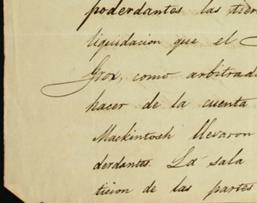 poderdantes las tier
liquidacion que el
Grox, como arbitrad
hacer de la cuenta
Mackintosh llevaron
derdantes. La sala
ticion de las partes